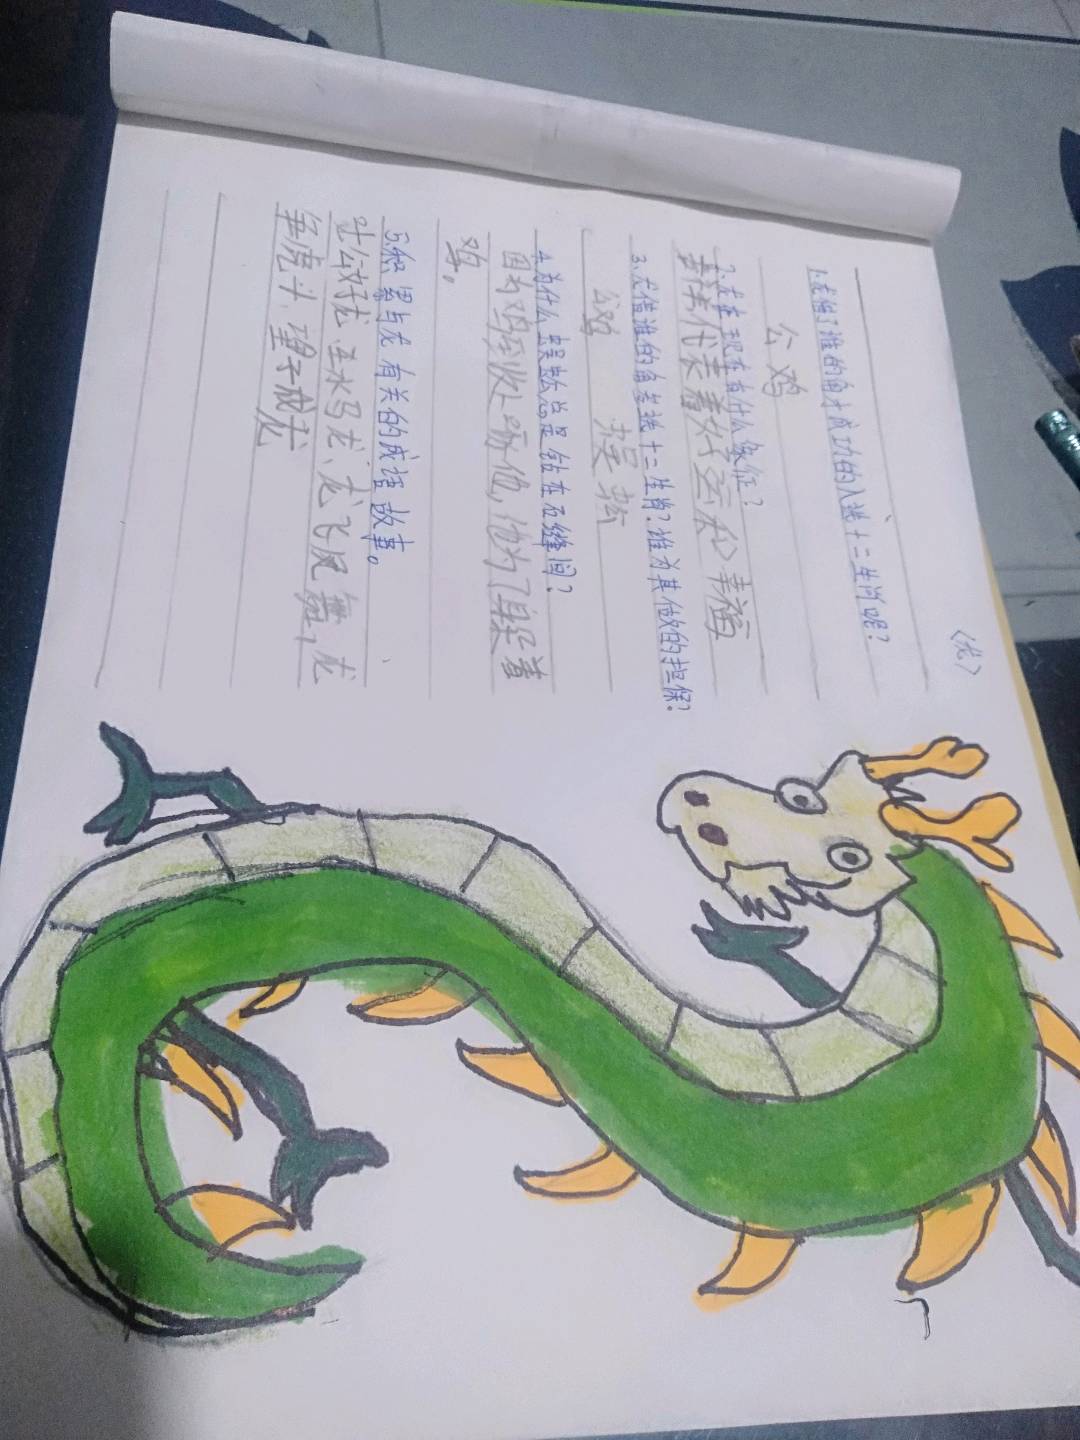 (龙)
1.龙借了谁的角才成功的入选十二生肖呢?
公鸡
2.龙在现在有什么象征?
代表着好运和幸福
3.龙借谁的角参选十二生肖?谁为其做的担保?
公鸡 蜈蚣
4.为什么蜈蚣总是钻在石缝间?
因为鸡到处啄他,他为了躲着
鸡。
5.积累与龙有关的成语故事。
叶公好龙、车水马龙、龙飞凤舞、龙
争虎斗、望子成龙